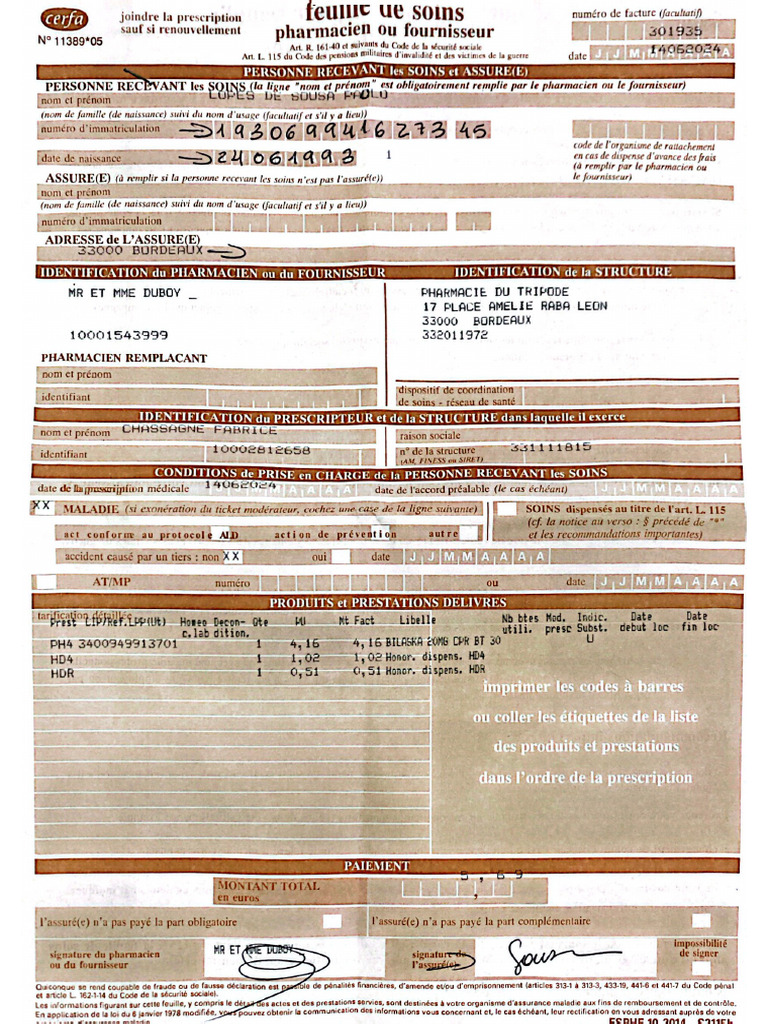 cerfa
N° 11389*05
joindre la prescription
sauf si renouvellement
feuille de soins
pharmacien ou fournisseur
Art. R. 161-40 et suivants du Code de la sécurité sociale
Art. L. 115 du Code des pensions militaires d'invalidité et des victimes de la guerre
numéro de facture (facultatif)
301935
date 14062024
PERSONNE RECEVANT les SOINS et ASSURE(E)
PERSONNE RECEVANT les SOINS (la ligne "nom et prénom" est obligatoirement remplie par le pharmacien ou le fournisseur)
nom et prénom LOPES DE SOUSA PAULO
(nom de famille (de naissance) suivi du nom d'usage (facultatif et s'il y a lieu))
numéro d'immatriculation 1930699416273 45
date de naissance 24061993 1
code de l'organisme de rattachement
en cas de dispense d'avance des frais
(à remplir par le pharmacien ou
le fournisseur)
ASSURE(E) (à remplir si la personne recevant les soins n'est pas l'assuré(e))
nom et prénom
(nom de famille (de naissance) suivi du nom d'usage (facultatif et s'il y a lieu))
numéro d'immatriculation
ADRESSE de L'ASSURE(E)
33000 BORDEAUX
IDENTIFICATION du PHARMACIEN ou du FOURNISSEUR
IDENTIFICATION de la STRUCTURE
MR ET MME DUBOY _
10001543999
PHARMACIE DU TRIPODE
17 PLACE AMELIE RABA LEON
33000 BORDEAUX
332011972
PHARMACIEN REMPLAÇANT
nom et prénom
identifiant
dispositif de coordination
de soins - réseau de santé
IDENTIFICATION du PRESCRIPTEUR et de la STRUCTURE dans laquelle il exerce
nom et prénom CHASSAGNE FABRICE
raison sociale
identifiant 10002812658
n° de la structure 331111815
(AM, FINESS ou SIRET)
CONDITIONS de PRISE en CHARGE de la PERSONNE RECEVANT les SOINS
date de la prescription médicale 14062024
date de l'accord préalable (le cas échéant) J J M M A A A A
XX MALADIE (si exonération du ticket modérateur, cochez une case de la ligne suivante)
SOINS dispensés au titre de l'art. L. 115
(cf. la notice au verso : § précédé de "*"
et les recommandations importantes)
act conforme au protocole ALD action de prévention autre
accident causé par un tiers : non XX oui date J J M M A A A A
AT/MP numéro ou date J J M M A A A A
PRODUITS et PRESTATIONS DELIVRES
tarification détaillée
Prest CIP/Ref.LPP(Ut) Homeo Decon- Qte MU Mt Fact Libelle Nb btes Mod. Indic. Date Date
c.lab dition. utili. presc Subst. debut loc fin loc
PH4 3400949913701 1 4,16 4,16 BILASKA 20MG CPR BT 30 U
HD4 1 1,02 1,02 Honor. dispens. HD4
HDR 1 0,51 0,51 Honor. dispens. HDR
imprimer les codes à barres
ou coller les étiquettes de la liste
des produits et prestations
dans l'ordre de la prescription
PAIEMENT
MONTANT TOTAL
en euros
5,69
l'assuré(e) n'a pas payé la part obligatoire
l'assuré(e) n'a pas payé la part complémentaire
signature du pharmacien
ou du fournisseur
MR ET MME DUBOY
signature de
l'assuré(e)
Sousa
impossibilité
de signer
Quiconque se rend coupable de fraude ou de fausse déclaration est passible de pénalités financières, d'amende et/ou d'emprisonnement (articles 313-1 à 313-3, 433-19, 441-6 et 441-7 du Code pénal
et article L. 162-1-14 du Code de la sécurité sociale).
Les informations figurant sur cette feuille, y compris le détail des actes et des prestations servies, sont destinées à votre organisme d'assurance maladie aux fins de remboursement et de contrôle.
En application de la loi du 6 janvier 1978 modifiée, vous pouvez obtenir la communication des informations vous concernant et, le cas échéant, leur rectification en vous adressant auprès de votre
organisme d'assurance maladie.